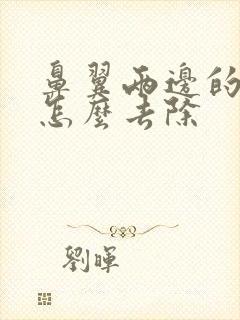 鼻翼兩邊的
怎麼去除
劉暉